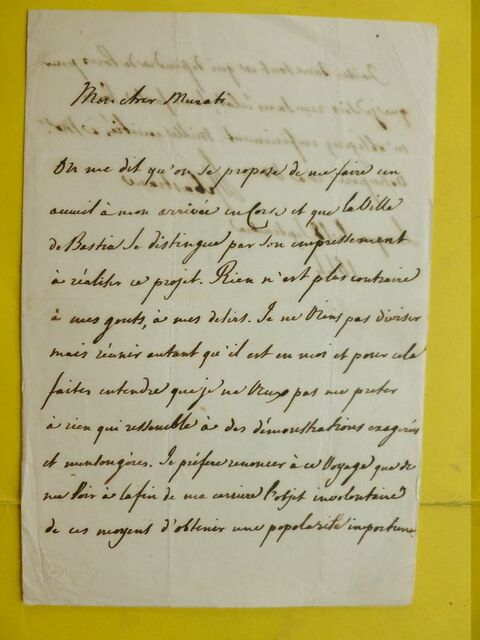 Mon cher Murati
On me dit qu'on se propose de me faire un
accueil à mon arrivée en Corse et que la Ville
de Bastia se distingue par son empressement
à réaliser ce projet. Rien n'est plus contraire
à mes gouts, à mes desirs. Je ne Viens pas diviser
mais réunir autant qu'il est en moi et pour cela
faites entendre que je ne Veux pas me preter
à rien qui ressemble à des démonstrations exagerées
et mensongères. Je préfère renoncer à ce Voyage que de
me Voir à la fin de ma carriere l'objet involontaire
de ces moyens d'obtenir une popolarité importune